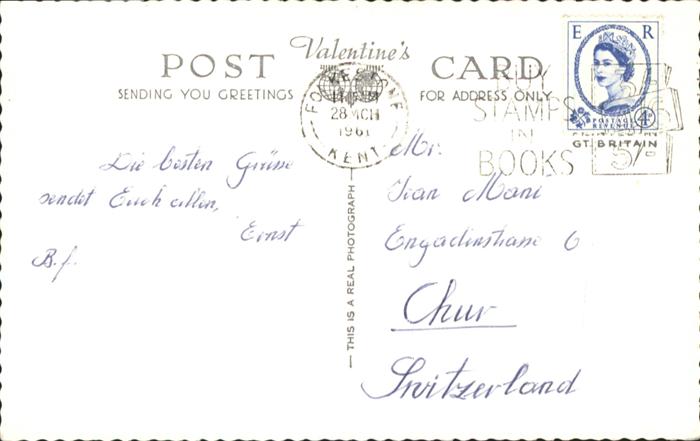 Valentine's
POST CARD
SENDING YOU GREETINGS
FOR ADDRESS ONLY
FOLKESTONE
28 MCH
1961
KENT
STAMPS
IN
BOOKS
E R
POSTAGE
REVENUE
4D
PRINTED IN
GT. BRITAIN
Die besten Grüsse
sendet Euch allen,
Ernst
B.f.
— THIS IS A REAL PHOTOGRAPH —
Mr.
Jean Mani
Engadinstrasse 6
Chur
Switzerland